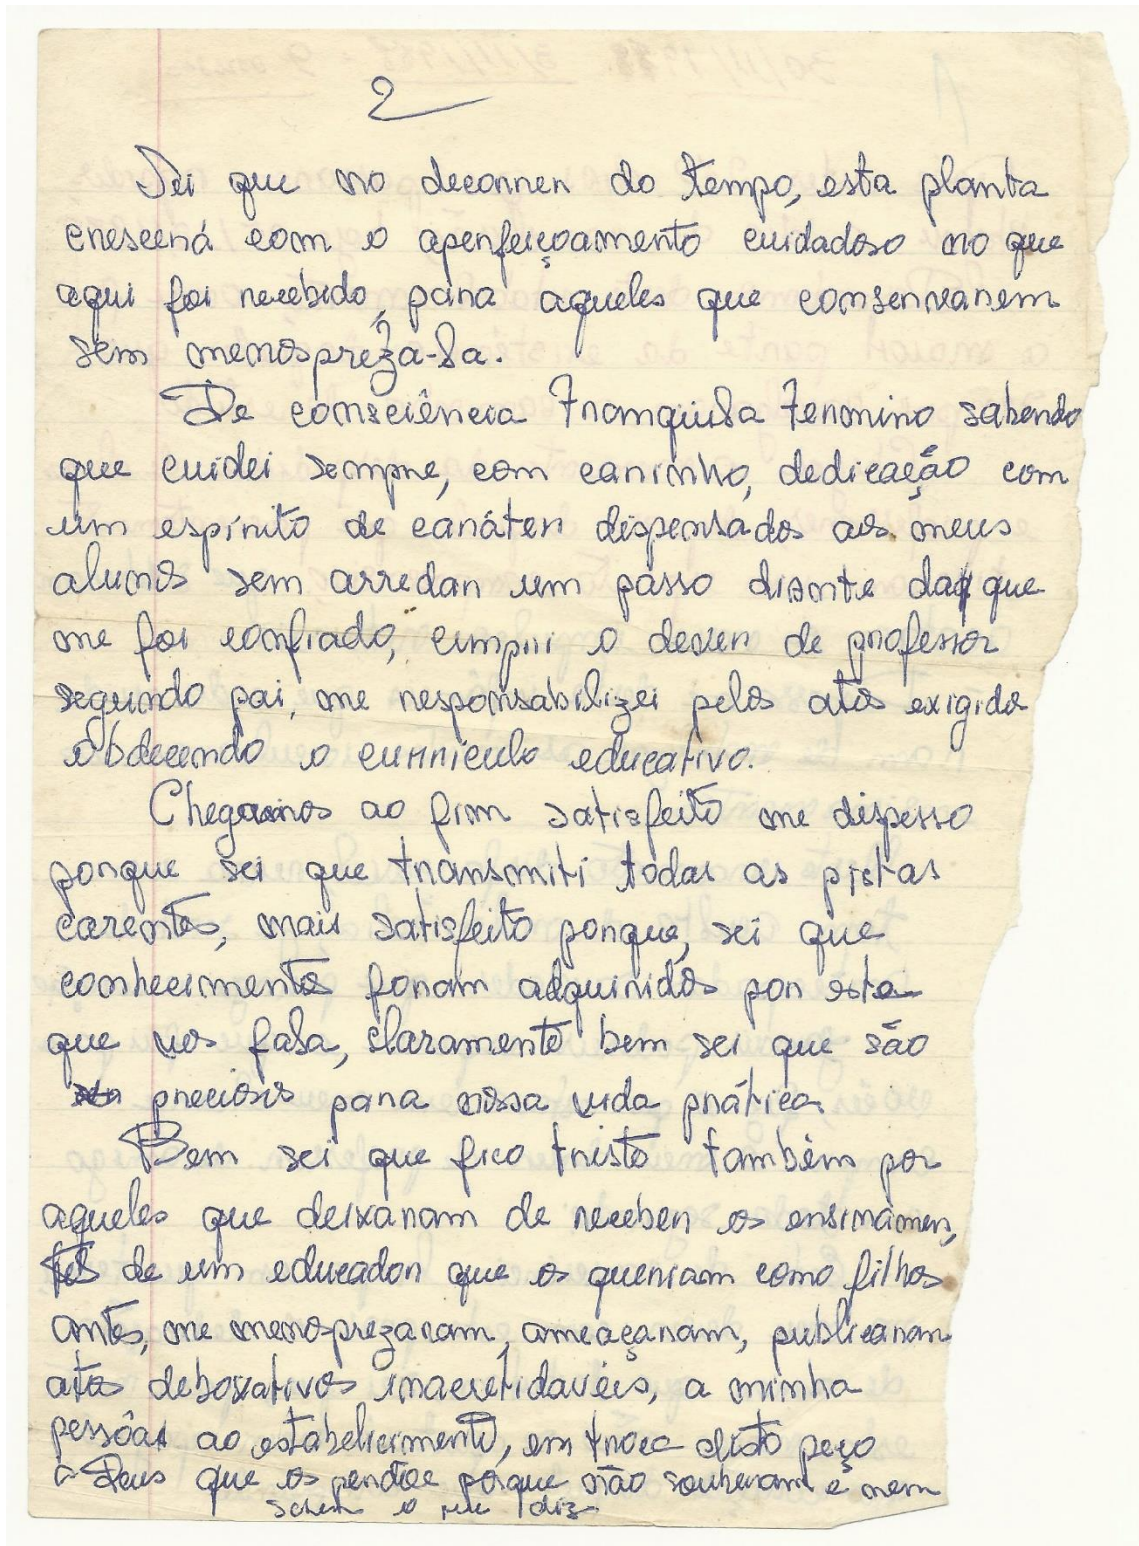 2
Sei que no decorrer do tempo, esta planta
crescerá com o aperfeiçoamento cuidadoso no que
aqui foi recebido, para aqueles que conservarem
sem menospreza-la.
De consciência Tranqüila Termino sabendo
que cuidei sempre, com carinho, dedicação com
um espírito de caráter dispensados aos meus
alunos sem arredar um passo diante da que
me foi confiado, cumpri o dever de professor
segundo pai, me responsabilizei pelos atos exigido
obdecendo o currículo educativo.
Chegamos ao fim satisfeito me dispesso
porque sei que transmiti todas as pistas
carentes, mais satisfeito porque, sei que
conhecimentos foram adquiridos por este
que vos fala, claramente bem sei que são
preciosis para nossa vida prática.
Bem sei que fico triste também por
aqueles que deixaram de receber os ensinamen,
tos de um educador que os queriam como filhos
antes, me menosprezaram, ameaçaram, publicaram
atos deboxativos inacretidavéis, a minha
pessôa ao estabelicimento, em troca disto peço
a Deus que os perdõe porque não souberam e nem
sabem o que diz